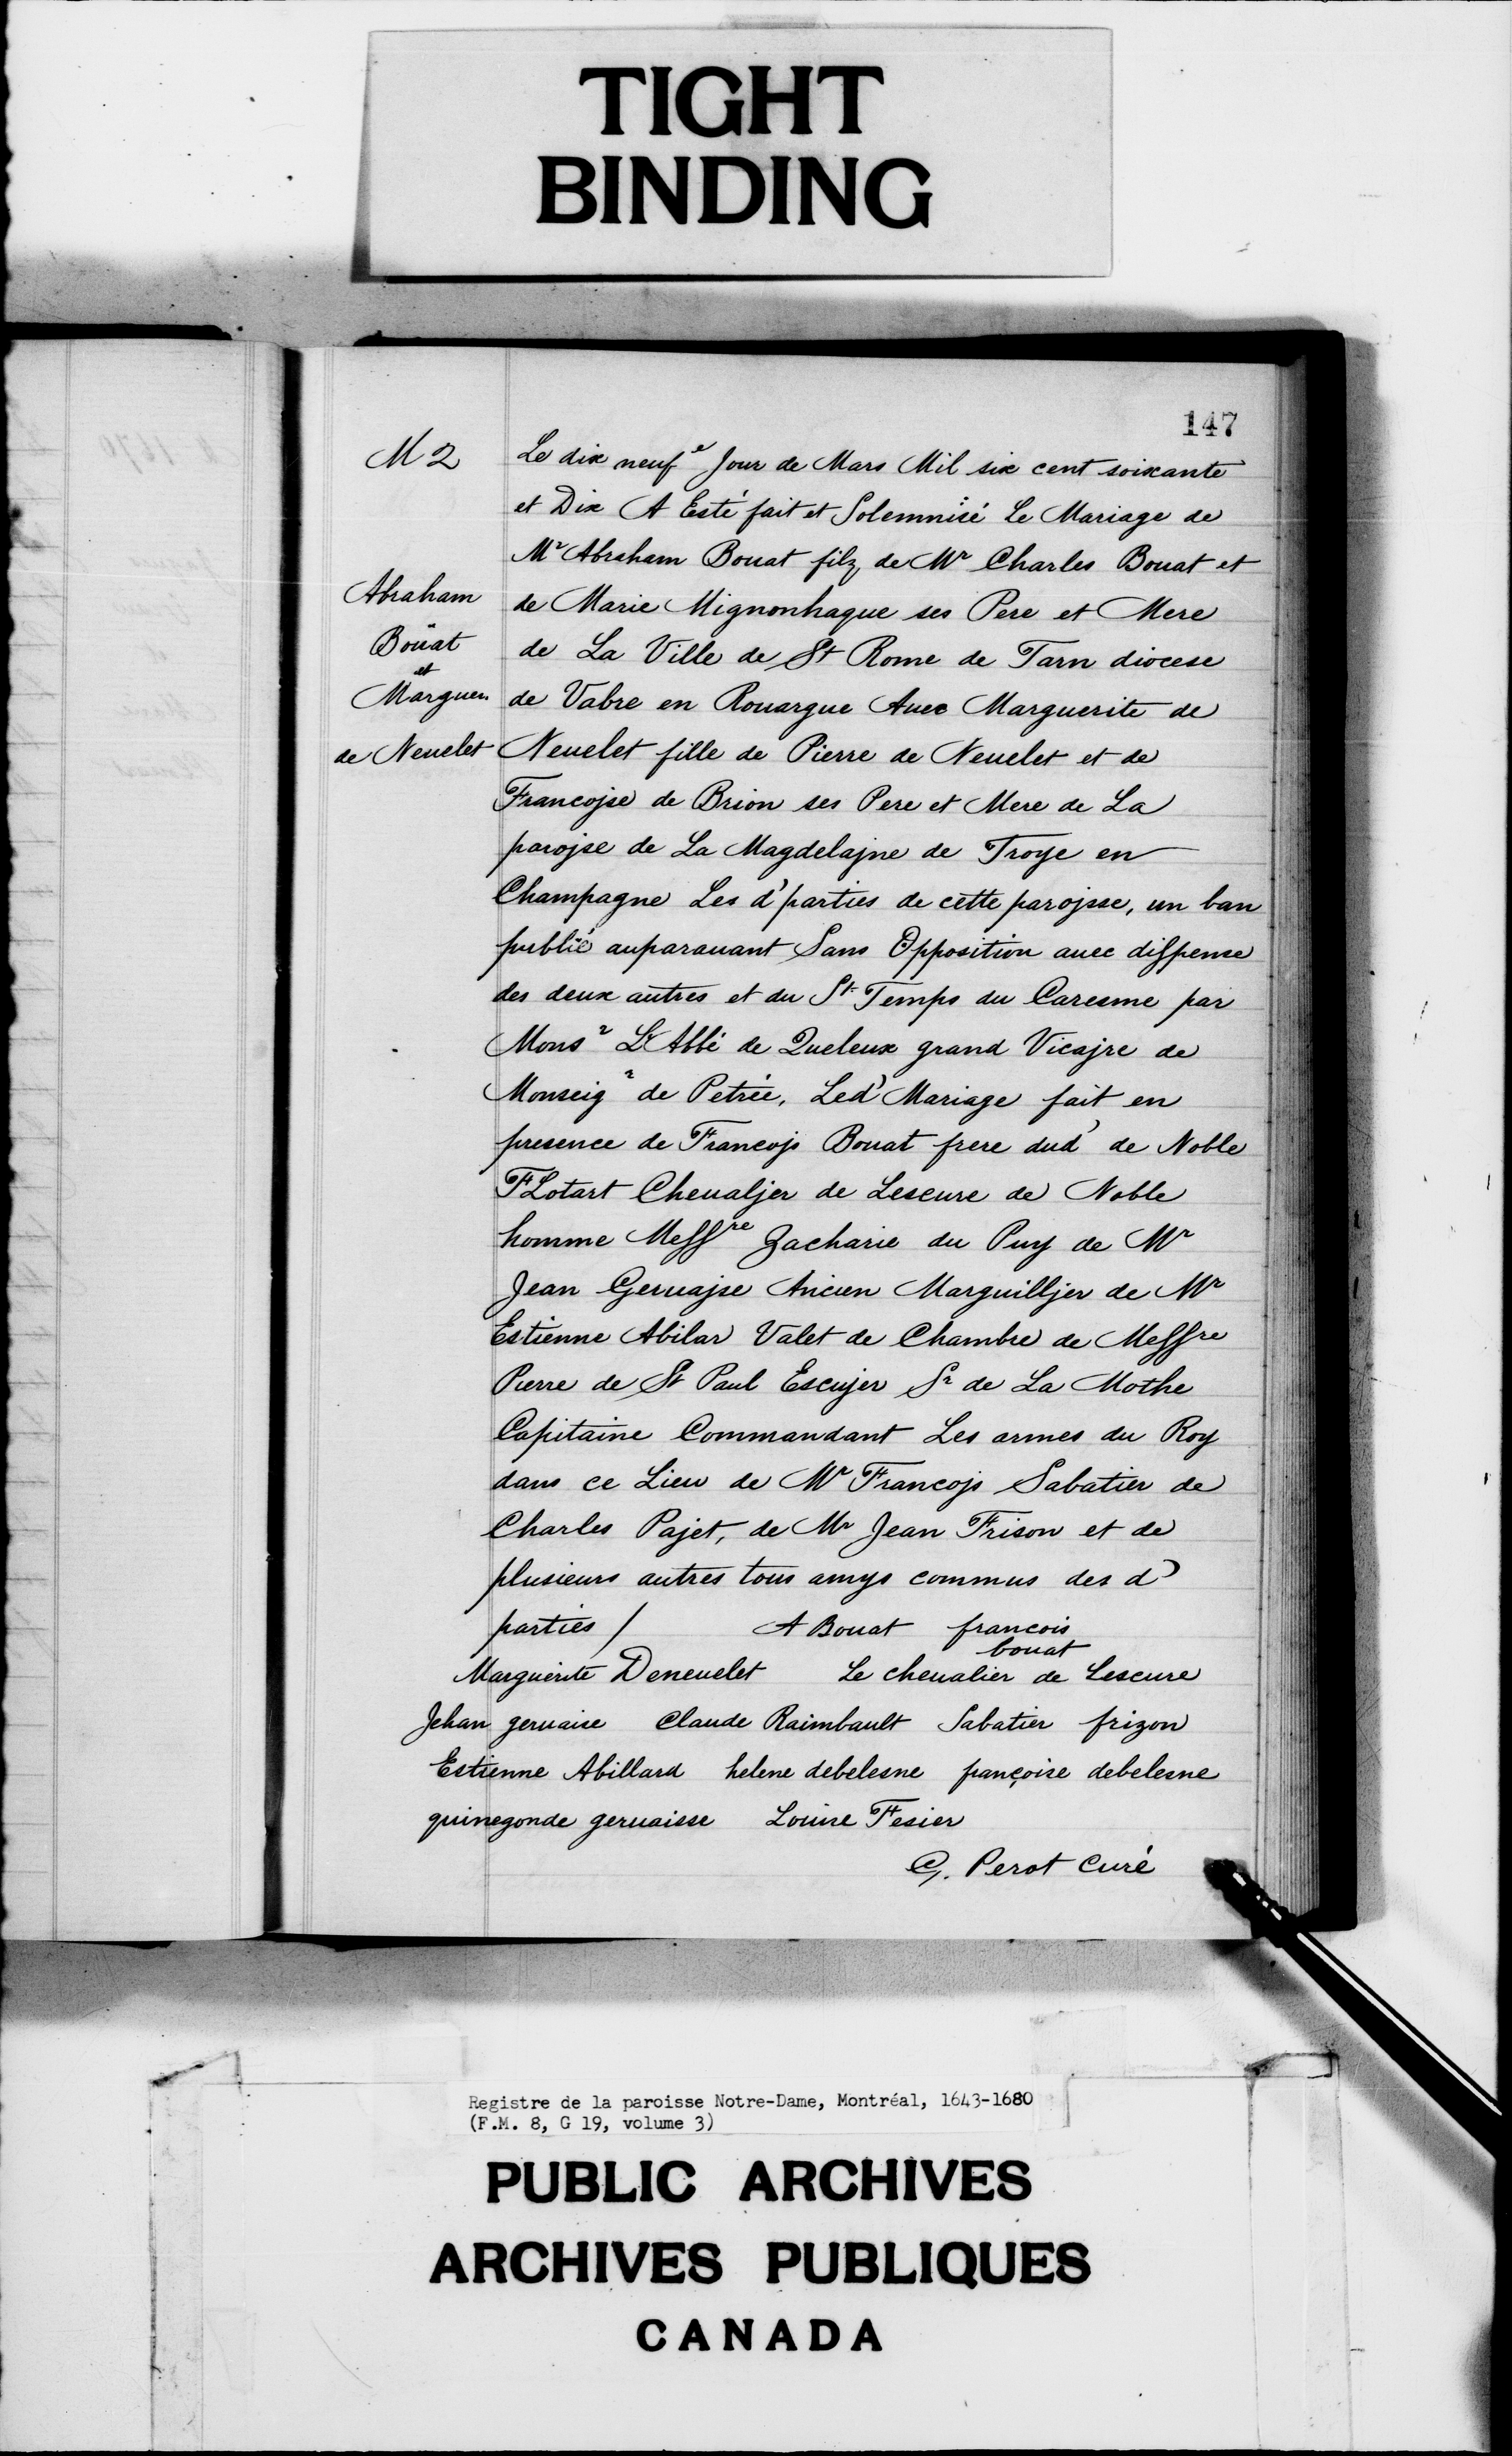 TIGHT
BINDING
147
M 2
Abraham
Boüat
et
Marguer.
de Neuelet
Le dix neuf e Jour de Mars Mil six cent soixante
et Dix A Esté fait et Solemnisé Le Mariage de
Mr Abraham Bouat filz de Mr Charles Bouat et
de Marie Mignonhaque ses Pere et Mere
de La Ville de St Rome de Tarn diocese
de Vabre en Rouargue Auec Marguerite de
Neuelet fille de Pierre de Neuelet et de
Francojse de Brion ses Pere et Mere de La
parojse de La Magdelajne de Troye en
Champagne Les d' parties de cette parojsse, un ban
publié auparauant Sans Opposition auec dispense
des deux autres et du St Temps du Caresme par
Monsr L'Abbé de Queleux grand Vicajre de
Monseigr de Petrée, Led' Mariage fait en
presence de Francojs Bouat frere dud' de Noble
FLotart Cheualjer de Lescure de Noble
homme Messre Zacharie du Puy de Mr
Jean Geruajse Ancien Marguilljer de Mr
Estienne Abilar Valet de Chambre de Messre
Pierre de St Paul Escujer Sr de La Mothe
Capitaine Commandant Les armes du Roy
dans ce Lieu de Mr Francojs Sabatier de
Charles Pajet, de Mr Jean Frison et de
plusieurs autres tous amys commus des d'
parties / A Bouat francois
bouat
Marguerite Deneuelet Le cheualier de Lescure
Jehan geruaise Claude Raimbault Sabatier frizon
Estienne Abillard helene debelesne françoise debelesne
quinegonde geruaisse Louise Fesier
G. Perot Curé
Registre de la paroisse Notre-Dame, Montréal, 1643-1680
(F.M. 8, G 19, volume 3)
PUBLIC ARCHIVES
ARCHIVES PUBLIQUES
CANADA